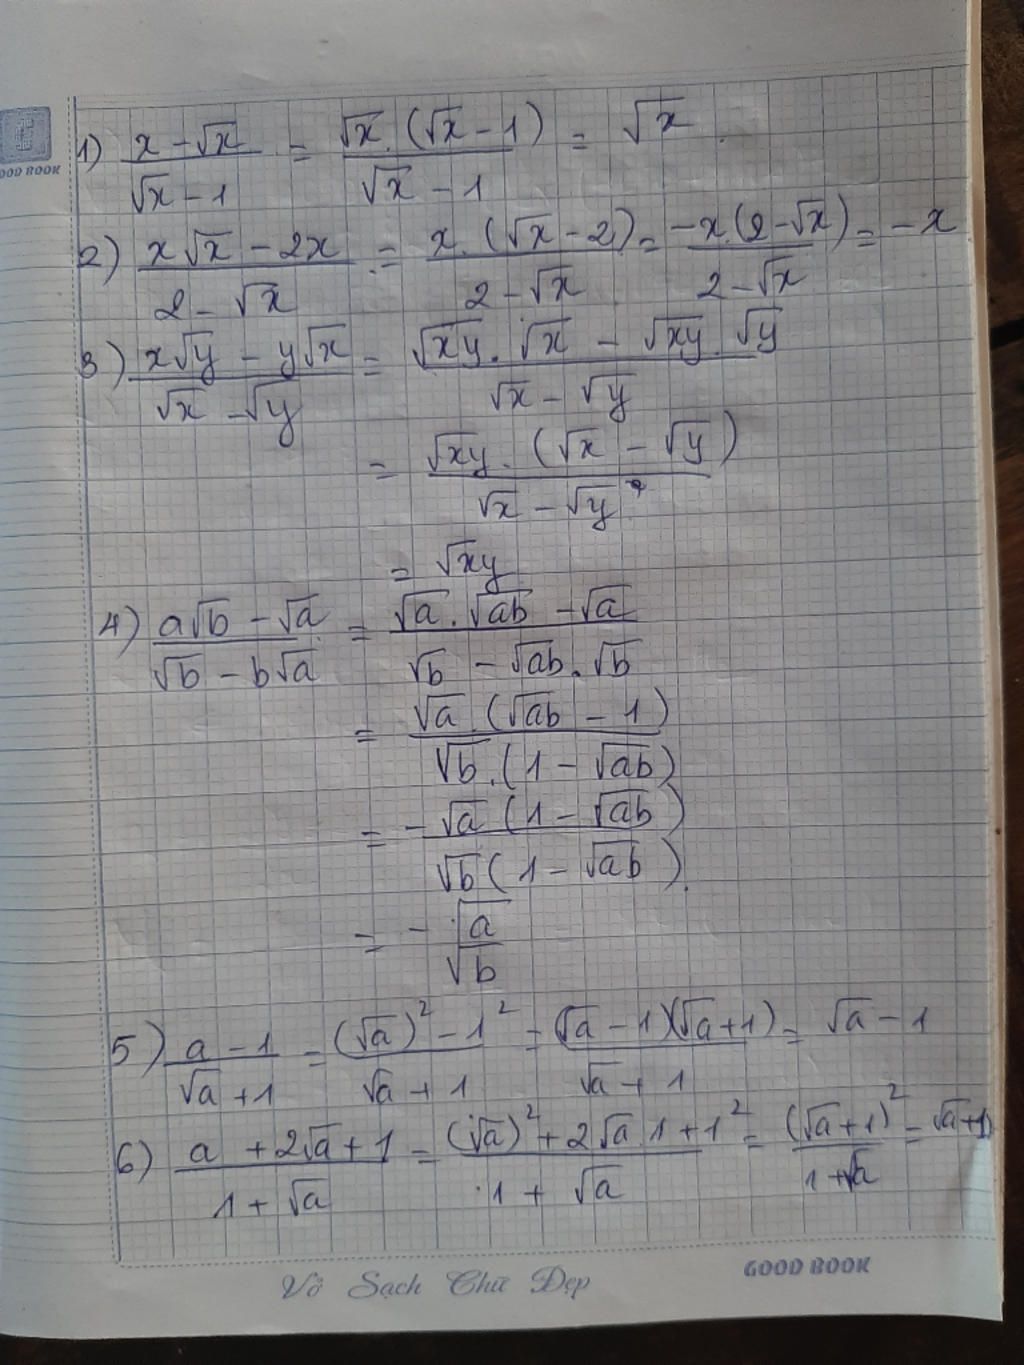 1) (x - √x)/(√x - 1) = (√x . (√x - 1))/(√x - 1) = √x .
GOOD BOOK
2) (x√x - 2x)/(2 - √x) = (x . (√x - 2))/(2 - √x) = (-x . (2 - √x))/(2 - √x) = -x
3) (x√y - y√x)/(√x - √y) = (√xy . √x - √xy . √y)/(√x - √y)
= (√xy . (√x - √y))/(√x - √y)
= √xy
4) (a√b - √a)/(√b - b√a) = (√a . √ab - √a)/(√b - √ab . √b)
= (√a . (√ab - 1))/(√b . (1 - √ab))
= (-√a (1 - √ab))/(√b (1 - √ab))
= - √a/√b
5) (a - 1)/(√a + 1) = ((√a)² - 1²)/(√a + 1) = ((√a - 1)(√a + 1))/(√a + 1) = √a - 1
6) (a + 2√a + 1)/(1 + √a) = ((√a)² + 2√a . 1 + 1²)/(1 + √a) = (√a + 1)²/(1 + √a) = √a + 1
Vở Sạch Chữ Đẹp
GOOD BOOK